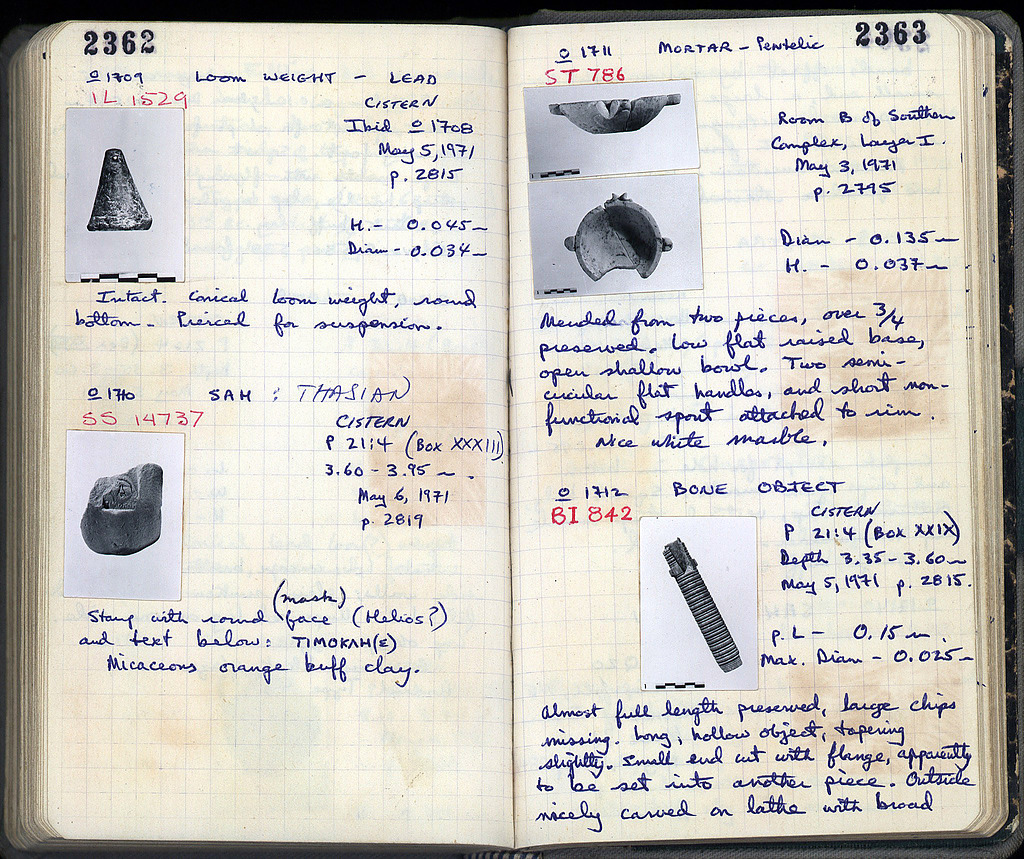 2362
O 1709 LOOM WEIGHT - LEAD
IL 1529
CISTERN
Ibid O 1708
May 5, 1971
p. 2815
H. - 0.045 m
Diam - 0.034 m
Intact. Conical loom weight, round
bottom. Pierced for suspension.
O 1710 SAH : THASIAN
SS 14737
CISTERN
P 21:4 (Box XXXIII)
3.60 - 3.95 m.
May 6, 1971
p. 2819
(mask)
Stamp with round face (Helios?)
and text below: TIMOKΛH(Σ)
Micaceous orange buff clay.
2363
O 1711 MORTAR - Pentelic
ST 786
Room B of Southern
Complex, Layer I.
May 3, 1971
p. 2795
Diam - 0.135 m
H. - 0.037 m
Mended from two pieces, over 3/4
preserved. Low flat raised base,
open shallow bowl. Two semi-
circular flat handles, and short non-
functional spout attached to rim.
Nice white marble.
O 1712 BONE OBJECT
BI 842
CISTERN
P 21:4 (Box XXIX)
Depth 3.35 - 3.60 m
May 5, 1971 p. 2815.
p. L - 0.15 m.
Max. Diam - 0.025 m
Almost full length preserved, large chips
missing. Long, hollow object, tapering
slightly. Small end cut with flange, apparently
to be set into another piece. Outside
nicely carved on lathe with broad